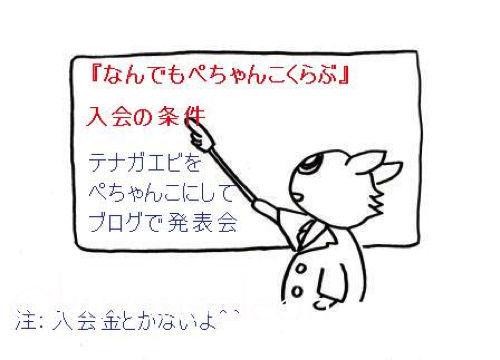 『なんでもぺちゃんこくらぶ』
入会の条件
テナガエビを
ぺちゃんこにして
ブログで発表会
注: 入会金とかないよ^^